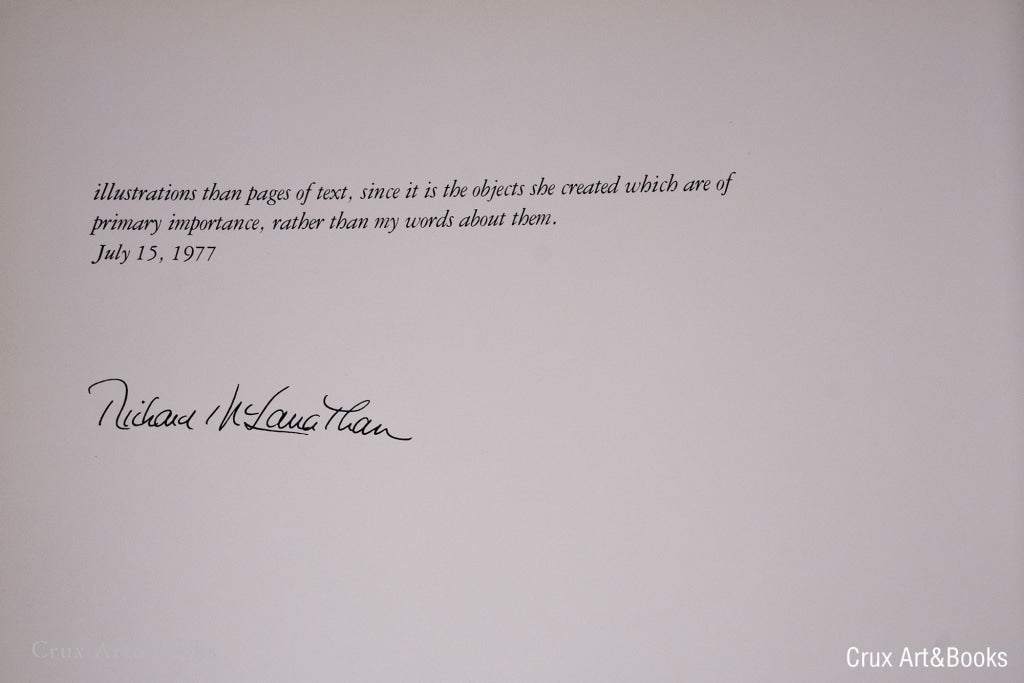 illustrations than pages of text, since it is the objects she created which are of
primary importance, rather than my words about them.
July 15, 1977
Richard McLanathan
Crux Art&Books